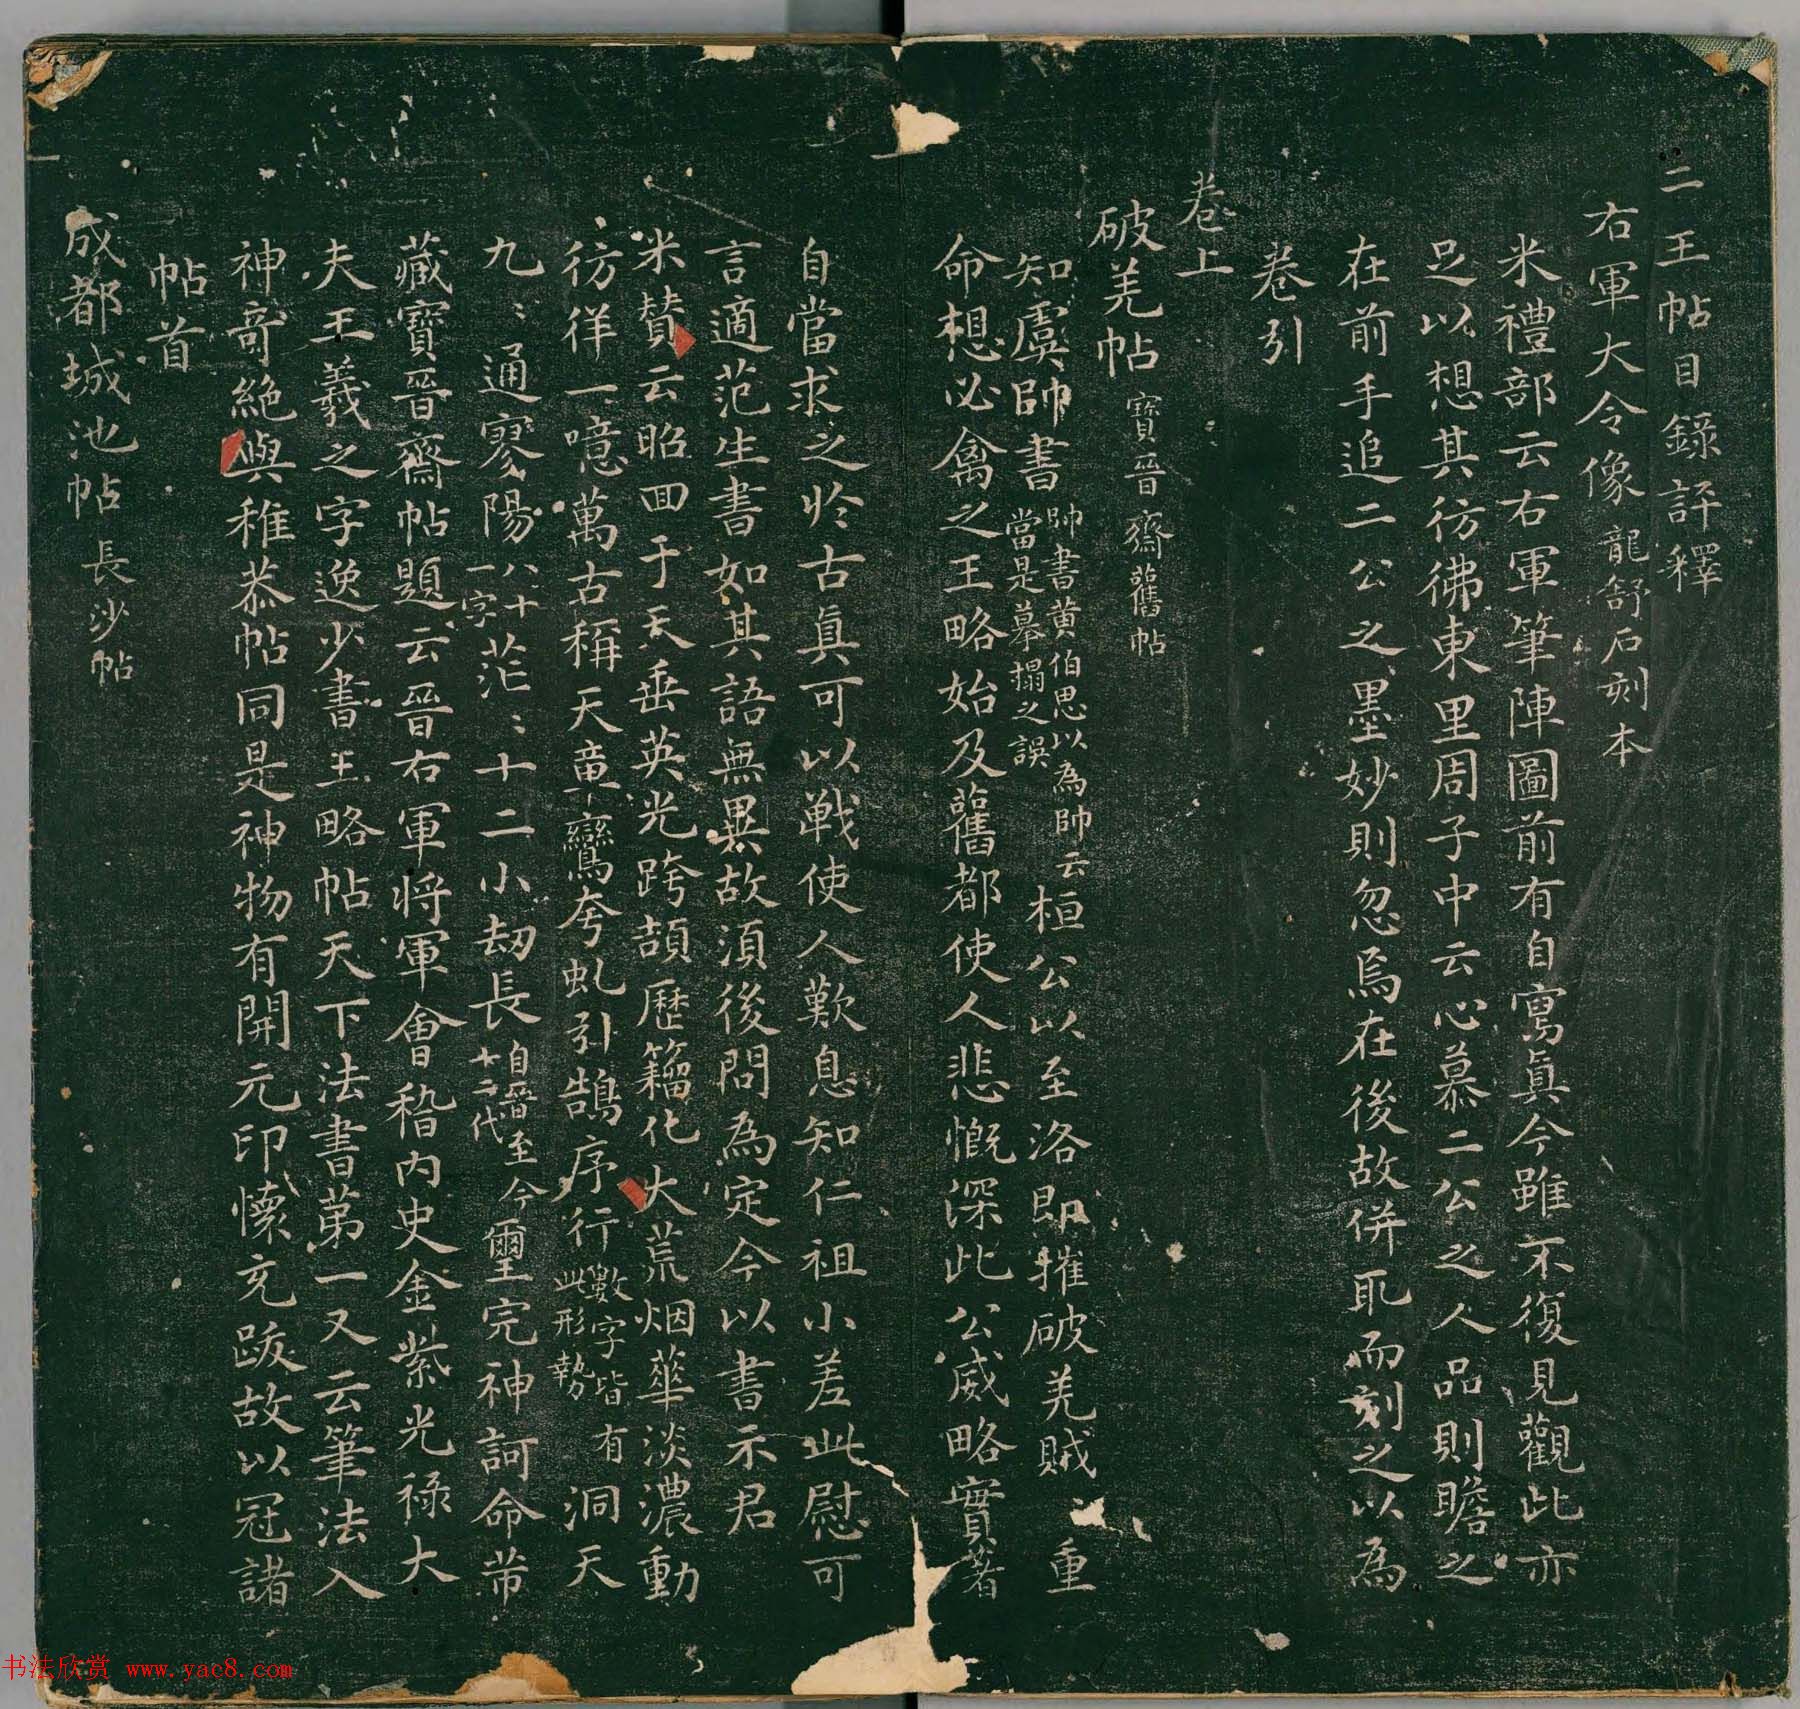 二王帖目錄評釋
右軍大令像 龍舒石刻本
米禮部云右軍筆陣圖前有自寫眞今雖不復見觀此亦
足以想其彷彿東里周子中云心慕二公之人品則瞻之
在前手追二公之墨妙則忽焉在後故併取而刻之以為
卷引
卷上
破羌帖 寶晉齋舊帖
知虞帥書 帥書黄伯思以為帥云當是摹搨之誤 桓公以至洛即摧破羌賊重
命想必禽之王略始及舊都使人悲慨深此公威略實著
自當求之於古真可以戰使人歎息知仁祖小差此慰可
言適范生書如其語無異故須後問為定今以書示君
米贊云昭回于天垂英光跨頡歷籀化大荒烟華淡濃動
彷徉一噫萬古稱天章鸞夸虬引鵠序行 數字皆有此形勢 洞天
九〻通寥陽 八十一字 茫〻十二小劫長 自晉至今十二代 璽完神訶命芾
藏寶晉齋帖題云晉右軍將軍會稽内史金紫光祿大
夫王羲之字逸少書王略帖天下法書第一又云筆法入
神奇絶與稚恭帖同是神物有開元印懷充跋故以冠諸
帖首
成都城池帖 長沙帖
书法欣赏 www.yac8.com